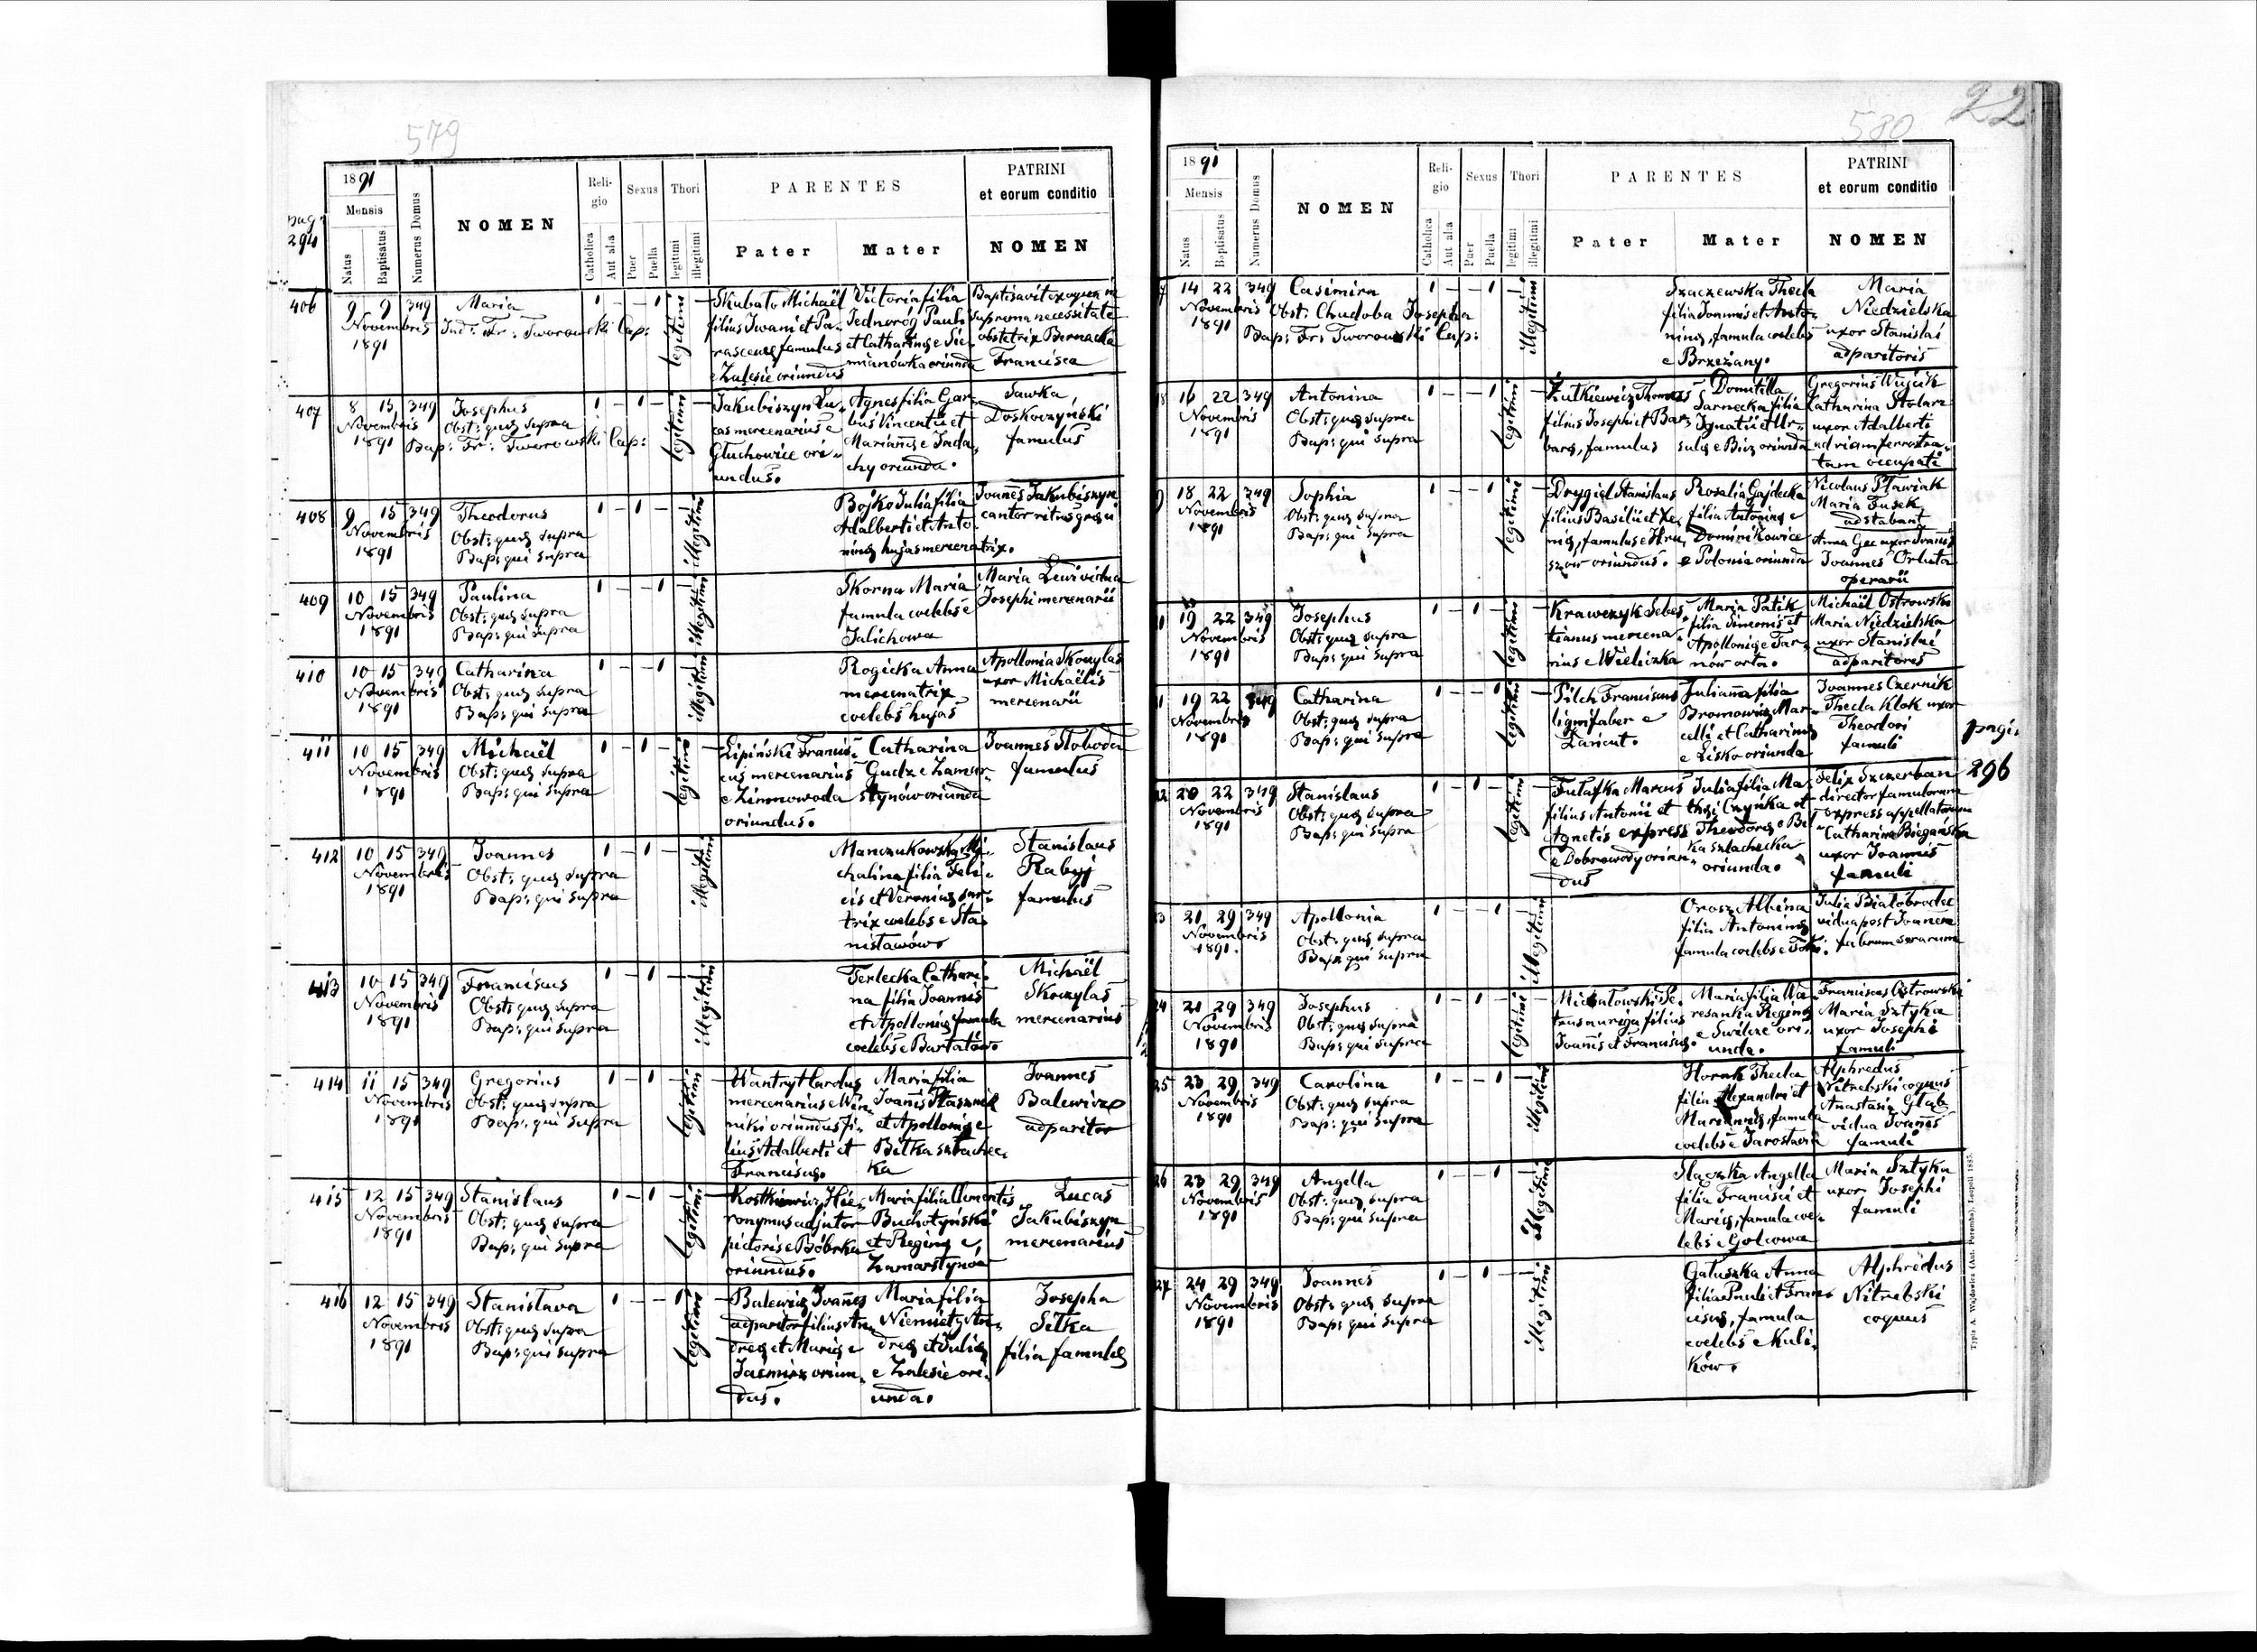 579
1891
Mensis
Natus
Baptisatus
Numerus Domus
NOMEN
Religio
Catholica
Aut alia
Sexus
Puer
Puella
Thori
legitimi
illegitimi
PARENTES
Pater
Mater
PATRINI
et eorum conditio
NOMEN
pag.
294
406
9 9 349
Novembris
1891
Maria
Ind: Fr: Tworowski Cap:
1 — — 1
legitimi
Skubato Michaël
filius Iwani et Pa-
rasceve famulus
e Zalesie oriundus
Victoria filia
Jednoróg Pauli
et Catharinæ e Sie-
mianówka oriunda
Baptisavit ex aqua in
suprema necessitate
obstetrix Bernacka
Francisca
407
8 15 349
Novembris
1891
Josephus
Obst: quæ supra
Bap: Fr: Tworowski Cap:
1 — 1 —
legitimi
Jakubiszyn Lu-
cas mercenarius e
Gluchowice ori-
undus.
Agnes filia Gar-
buś Vincentii et
Mariannæ e Sada-
chy oriunda.
Sawka
Doskoczyński
famulus
408
9 15 349
Novembris
1891
Theodorus
Obst: quæ supra
Bap: qui supra
1 — 1 —
illegitimi
Bojko Julia filia
Adalberti et Anto-
ninæ hujas mercenatrix.
Joannes Jakubiszyn
cantor ritus græci
409
10 15 349
Novembris
1891
Paulina
Obst: quæ supra
Bap: qui supra
1 — — 1
illegitimi
Skorna Maria
famula coelebs e
Jalichowa
Maria Lewi vidua
Josephi mercenarii
410
10 15 349
Novembris
1891
Catharina
Obst: quæ supra
Bap: qui supra
1 — — 1
illegitimi
Rogicka Anna
mercenatrix
coelebs hujas
Apollonia Skoczylas
uxor Michaëlis
mercenarii
411
10 15 349
Novembris
1891
Michaël
Obst: quæ supra
Bap: qui supra
1 — 1 —
legitimi
Lipiński Francis-
cus mercenarius
e Zimnowoda
oriundus.
Catharina
Gudz e Zamar-
stynów oriunda
Joannes Słoboda
famulus
412
10 15 349
Novembris
1891
Joannes
Obst: quæ supra
Bap: qui supra
1 — 1 —
illegitimi
Manczukowska Mi-
chalina filia Feli-
cis et Veronicæ sar-
trix coelebs e Sta-
nisławów
Stanislaus
Rabyj
famulus
413
10 15 349
Novembris
1891
Franciscus
Obst: quæ supra
Bap: qui supra
1 — 1 —
illegitimi
Terlecka Cathari-
na filia Joannis
et Apolloniæ famula
coelebs e Bartatów
Michaël
Skoczylas
mercenarius
414
11 15 349
Novembris
1891
Gregorius
Obst: quæ supra
Bap: qui supra
1 — 1 —
legitimi
Wantryt Carolus
mercenarius e Win-
niki oriundus fi-
lius Adalberti et
Franciscæ.
Maria filia
Joannis Ptasznik
et Apolloniæ e
Bilka szlachec-
ka
Joannes
Balewicz
adparitor
415
12 15 349
Novembris
1891
Stanislaus
Obst: quæ supra
Bap: qui supra
1 — 1 —
legitimi
Kostkiewicz Hie-
ronymus adjutor
pictoris e Bóbrka
oriundus.
Maria filia Clementis
Buchotyński
et Reginæ e
Zamarstynow
Lucas
Jakubiszyn
mercenarius
416
12 15 349
Novembris
1891
Stanislava
Obst: quæ supra
Bap: qui supra
1 — — 1
legitimi
Balewicz Joannes
adparitor filius An-
dreæ et Mariæ e
Jaćmirz oriun-
dus.
Maria filia
Niemiety An-
dreæ et Juliæ
e Zalesie ori-
unda.
Josepha
Sitka
filia famulæ
22
580
1891
Mensis
Natus
Baptisatus
Numerus Domus
NOMEN
Religio
Catholica
Aut alia
Sexus
Puer
Puella
Thori
legitimi
illegitimi
PARENTES
Pater
Mater
PATRINI
et eorum conditio
NOMEN
7
14 22 349
Novembris
1891
Casimira
Obst: Chudoba Josepha
Bap: Fr: Tworowski Cap:
1 — — 1
illegitimi
Szaczewska Thecla
filia Joannis et Anto-
ninæ, famula coelebs
e Brzeżany.
Maria
Niedzielska
uxor Stanislai
adparitoris
8
16 22 349
Novembris
1891
Antonina
Obst: quæ supra
Bap: qui supra
1 — — 1
legitimi
Żutkiewicz Thomas
filius Josephi et Bar-
baræ, famulus
Domitilla
Sarnecka filia
Ignatii et Ur-
sulæ e Bicz oriunda
Gregorius Wujcik
Catharina Stolarz
uxor Adalberti
ad viam ferrostra-
tam occupati
9
18 22 349
Novembris
1891
Sophia
Obst: quæ supra
Bap: qui supra
1 — — 1
legitimi
Drygiel Stanislaus
filius Basilii et Xe-
niæ, famulus e Hru-
szow oriundus.
Rosalia Gajdecka
filia Antoninæ e
Dominikowice
e Polonia oriunda
Nicolaus Pławiak
Maria Fusek
adstabant
Anna Gec uxor Joannis
Joannes Orluta
operarii
19 22 349
Novembris
1891
Josephus
Obst: quæ supra
Bap: qui supra
1 — 1 —
legitimi
Krawczyk Sebas-
tianus mercena-
rius e Wieliczka
Maria Patik
filia Simeonis et
Apolloniæ e Tar-
nów orta.
Michaël Ostrowski
Maria Niedzielska
uxor Stanislai
adparitores
1
19 22 349
Novembris
1891
Catharina
Obst: quæ supra
Bap: qui supra
1 — — 1
legitimi
Pilch Franciscus
lignifaber e
Łańcut.
Julianna filia
Bromowicz Mar-
celli et Catharinæ
e Lisko oriunda
Joannes Czernik
Thecla Klok uxor
Theodori
famuli
pagi.
296
22
20 22 349
Novembris
1891
Stanislaus
Obst: quæ supra
Bap: qui supra
1 — 1 —
legitimi
Fułafka Marcus
filius Antonii et
Agnetis express
e Dobrowody oriun-
dus
Julia filia Ma-
thæi Czyńka et
Theodoræ e Bił-
ka szlachecka
oriunda.
Felix Szczerban
director famulorum
express appellatorum
Catharina Biegańska
uxor Joannis
famuli
23
21 29 349
Novembris
1891.
Apollonia
Obst: quæ supra
Bap: qui supra
1 — — 1
illegitimi
Orosz Albina
filia Antoninæ
famula coelebs e
Julia Białobrodec
vidua post Joannem
fabrum
24
21 29 349
Novembris
1891
Josephus
Obst: quæ supra
Bap: qui supra
1 — 1 —
legitimi
Michałowski Pe-
trus auriga filius
Joannis et Franciscæ.
Maria filia Wa-
resanka Reginæ
e Swilcze ori-
unda.
Franciscus Ostrowski
Maria Sztyka
uxor Josephi
famuli
25
23 29 349
Novembris
1891
Carolina
Obst: quæ supra
Bap: qui supra
1 — — 1
illegitimi
Horak Thecla
filia Alexandri et
Mariannæ, famula
coelebs e Jarosław
Alphredus
Nitrebski coquus
Anastasia Głąb
vidua Joannis
famuli
26
23 29 349
Novembris
1891
Angella
Obst: quæ supra
Bap: qui supra
1 — — 1
illegitimi
Slączka Angella
filia Francisci et
Mariæ, famula coe-
lebs e Golcowa
Maria Sztyka
uxor Josephi
famuli
27
24 29 349
Novembris
1891
Joannes
Obst: quæ supra
Bap: qui supra
1 — 1 —
illegitimi
Gałuszka Anna
filia Pauli et Fran-
ciscæ, famula
coelebs e Kuli-
ków.
Alphredus
Nitrebski
coquus
Typis A. Wajdowicz (Ant. Poremba), Leopoli 1885.